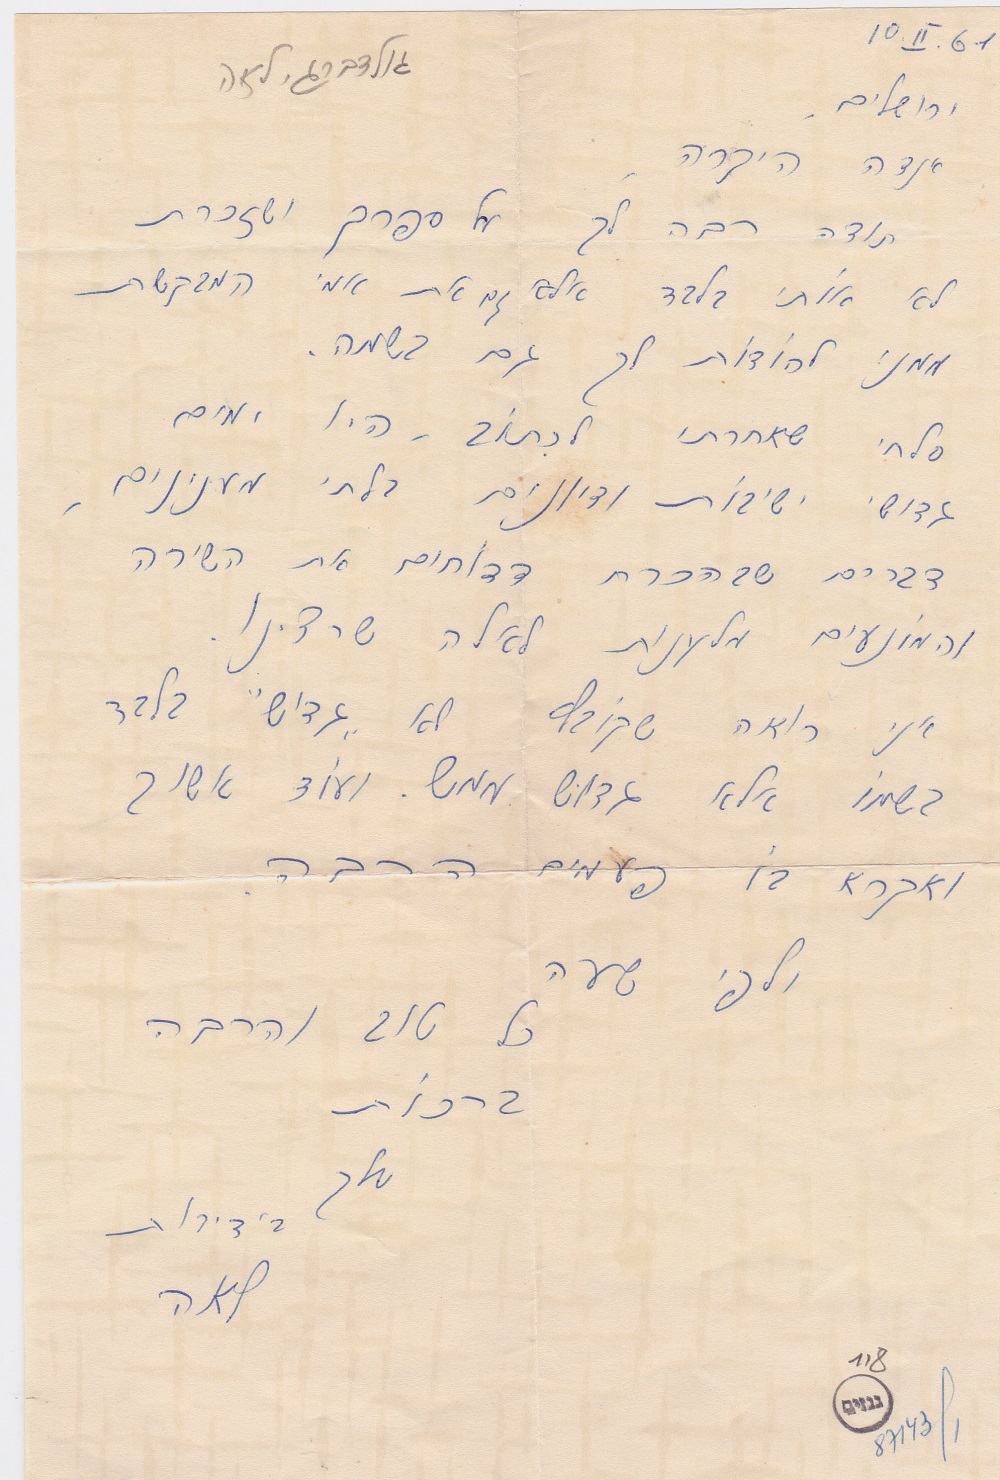 10.II.61
גולדברג, לאה
ירושלים.
אנדה היקרה,
תודה רבה לך על ספרך ושזכרת
לא אותי בלבד אלא גם את אמי המבקשת
ממני להודות לך גם בשמה.
סלחי שאחרתי לכתוב, היו ימים
גדושי ישיבות ודיונים בלתי מענינים,
דברים שבהכרח דוחים את השירה
והמונעים מלענות לאלה שרצינו.
אני רואה שקובץ לא "גדוש" בלבד
בשמו אלא גדוש ממש. ועוד אשוב
ואקרא בו פעמים הרבה.
ולפי שעה
כל טוב והרבה
ברכות
שלך
בידידות
לאה
118
גנזים
87143/ו